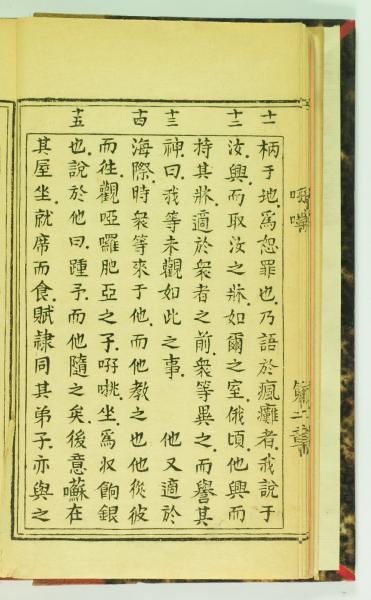 第二章
十一 柄于地為恕罪也乃語於瘋癱者我說于
十二 汝興而取汝之牀如爾之室俄頃他興而
持其牀適於衆者之前衆等異之而譽其
十三 神曰我等未觀如此之事 他又適於
十四 海際時衆等來于他而他教之也他從彼
而徃觀啞囉肥亞之子咷坐為収餉銀
十五 也說於他曰踵予而他隨之矣後意囌在
其屋坐就席而食賦隷同其弟子亦與之